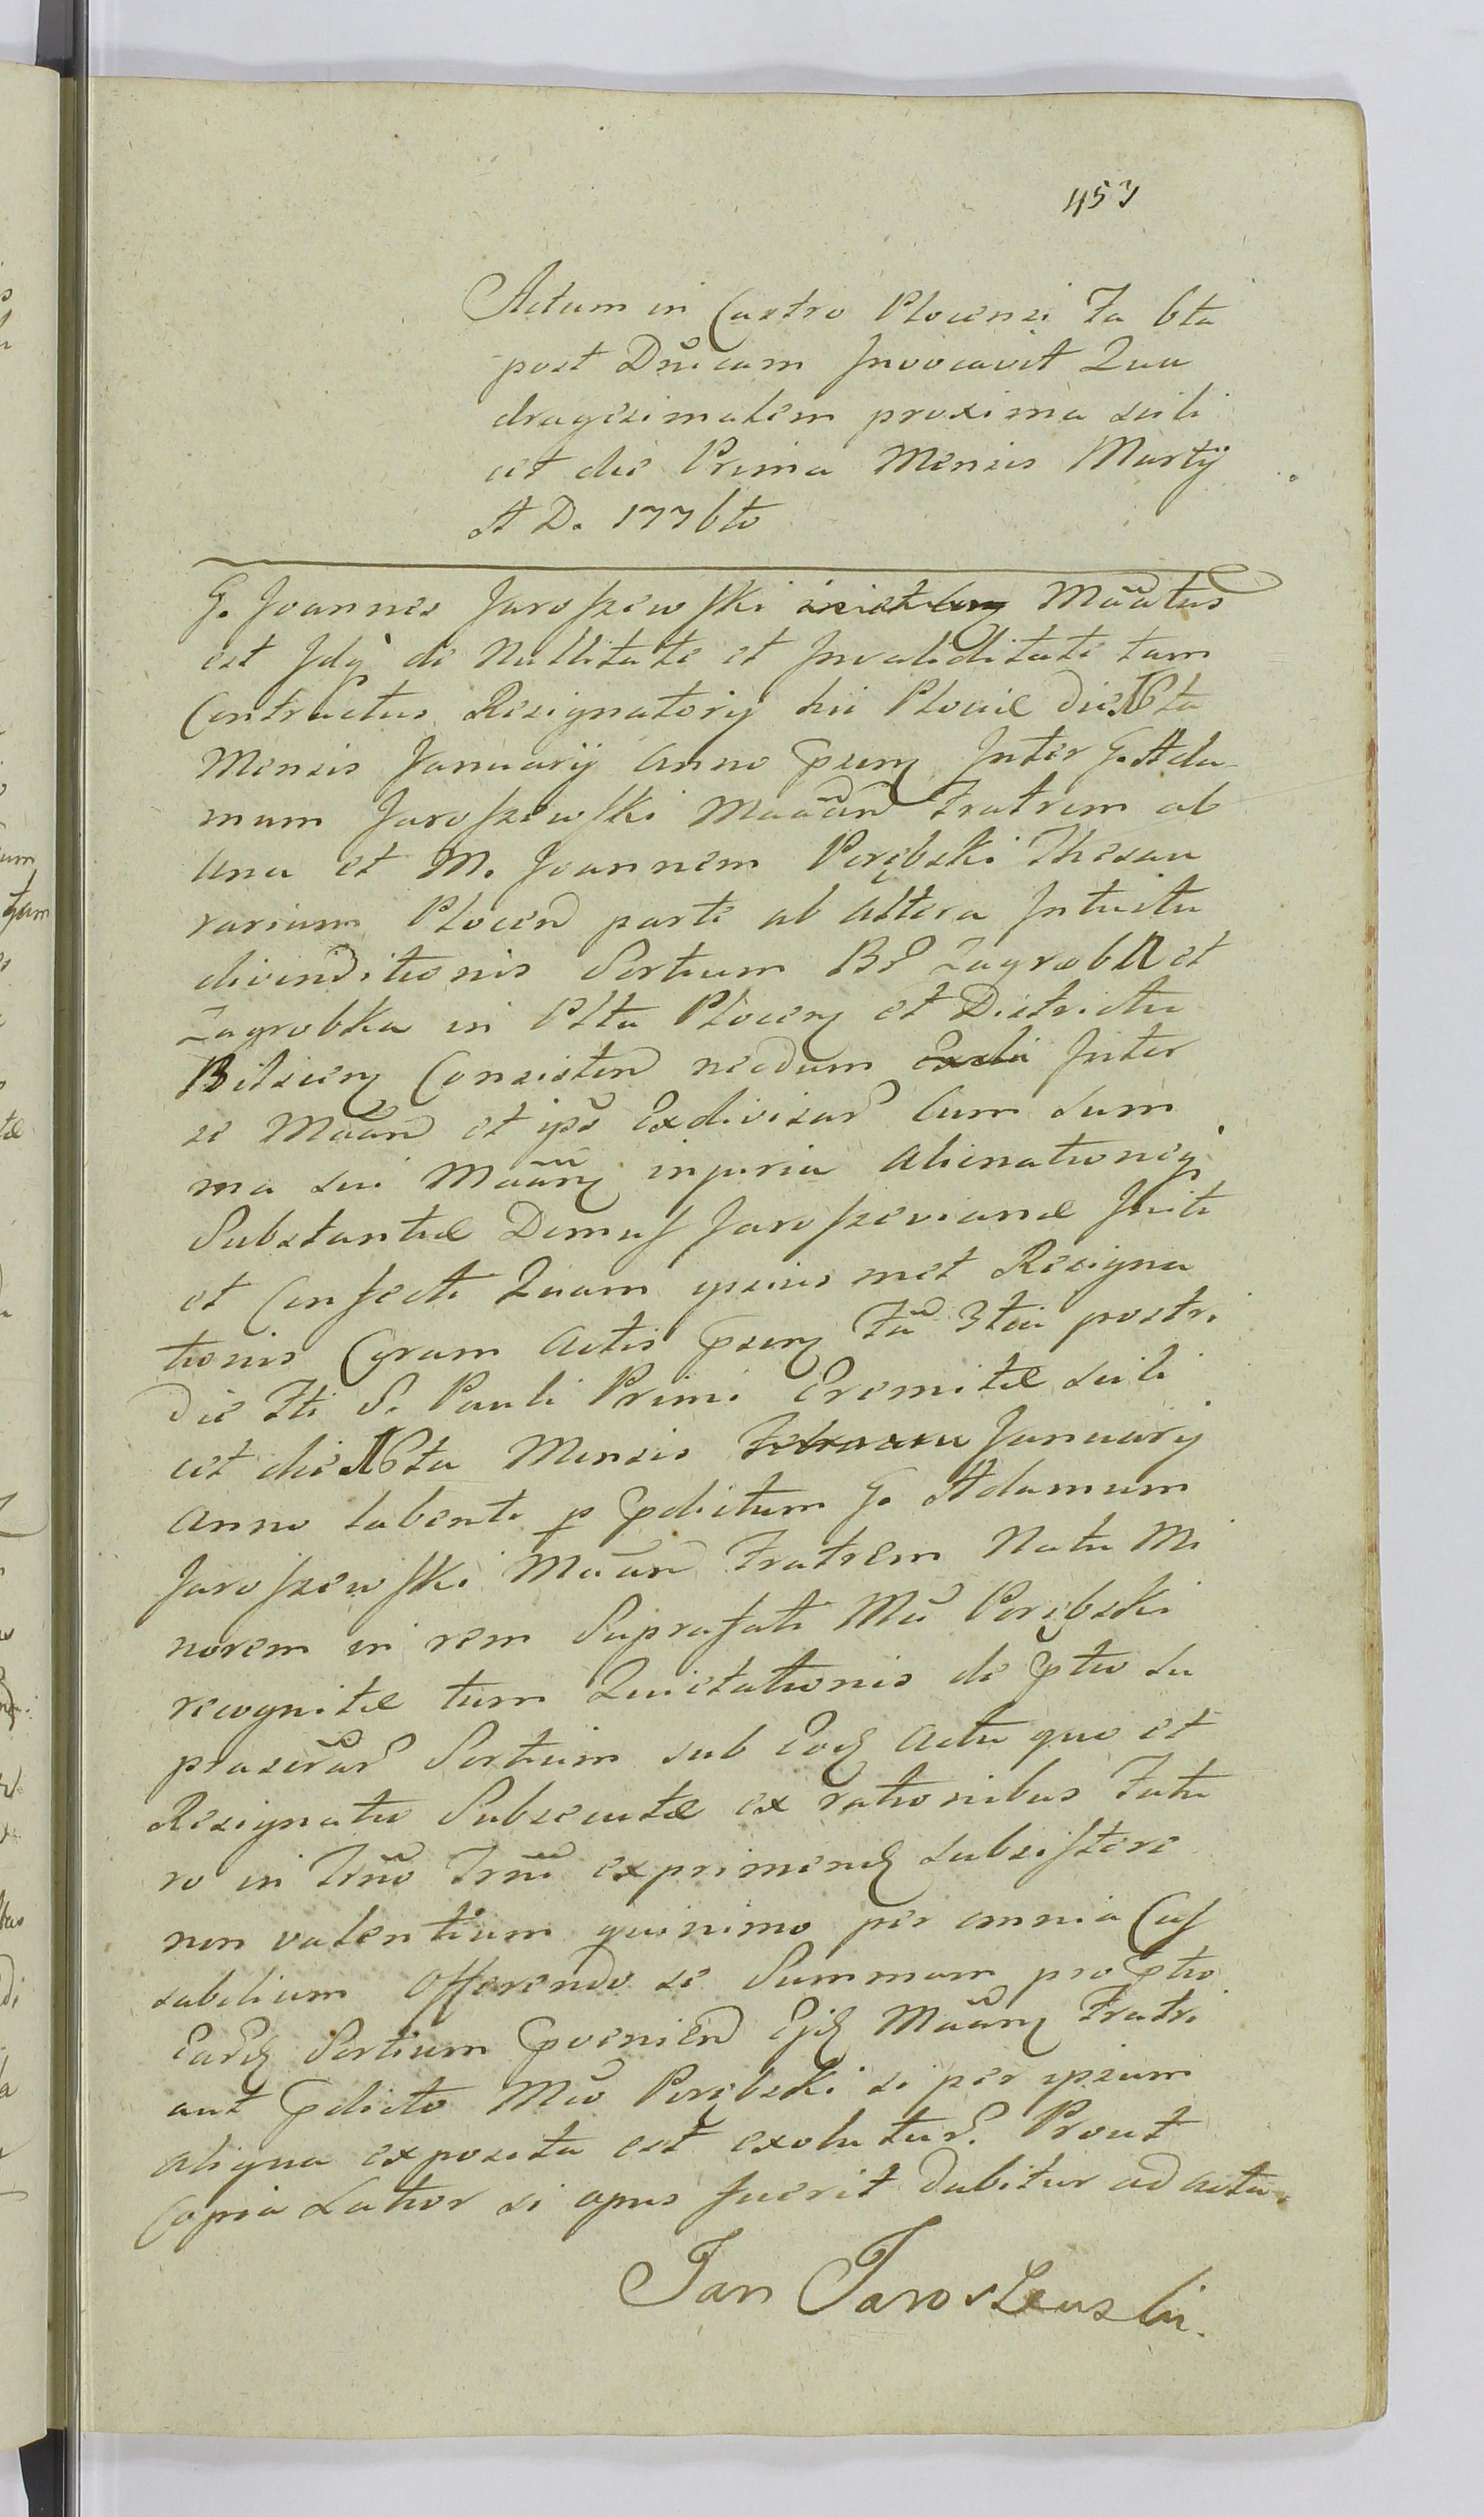 457
Actum in Castro Plocensi Fa 6ta
post Dnicam Invocavit Qua
dragesimalem proxima scili
cet die Prima Mensis Martÿ
A D. 1776to
G. Joannes Jaroszewski Mãatus
est Idq de Nullitate et Invaliditate tam
Contractus Resignatorÿ hic Plociæ die 16ta
Mensis Januarÿ Anno psen Inter G. Ada
mum Jaroszewski Maãn Fratrem ab
una et M. Joannem Porębski Thesau
rarium Plocen parte ab altera Intuitu
divenditionis Sortium B Zagroba et
Zagrobka in Pltu Plocen et Districtu
Bilscen Consisten necdum Inter
se Mãan et ips Exdivisar Cum sum
ma sui Mãan injuria alienationeq
Substantiæ Domus Jaroszevianæ Initi
et Confecti Quam ipsius met Resigna
tionis Coram Actis psen Fa 3tia postri
die Fti S. Pauli Primi Eremitæ scili
cet die 16ta Mensis Januarÿ
Anno labenti p pdictum G. Adamum
Jaroszewski Mãan Fratrem Natu Mi
norem in rem Suprafati Mci Porębski
recognitæ tum Quietationis de ptio su
praser Sortium sub Eod Actu quo et
Resignatio Subsecutæ ex rationibus Futu
ro in Trno Trni exprimend subsistere
non valentium quinimo per omnia Cas
sabilium Offerendo se Summam pro ptio
Eard Sortium pvenien Ejd Mãan Fratri
aut pdicto Mco Porębski si per ipsum
aliqua exposita est exolutur. Prout
Copia Latior si opus fuerit dabitur ad acta.
Jan Jaroszewski.